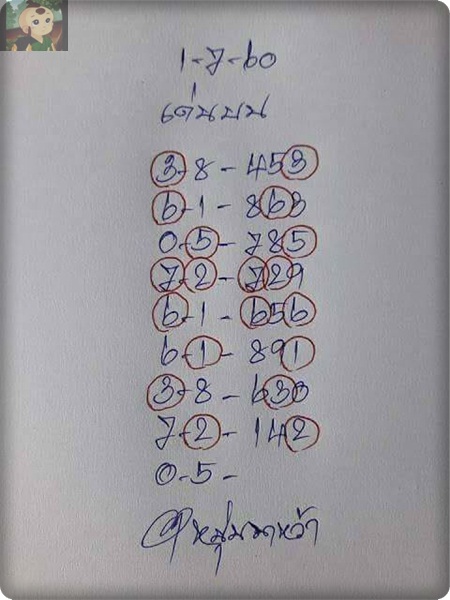 1-7-60
เด่นบน
3-8-453
6-1-863
0-5-785
7-2-729
6-1-656
6-1-891
3-8-630
7-2-142
0-5-